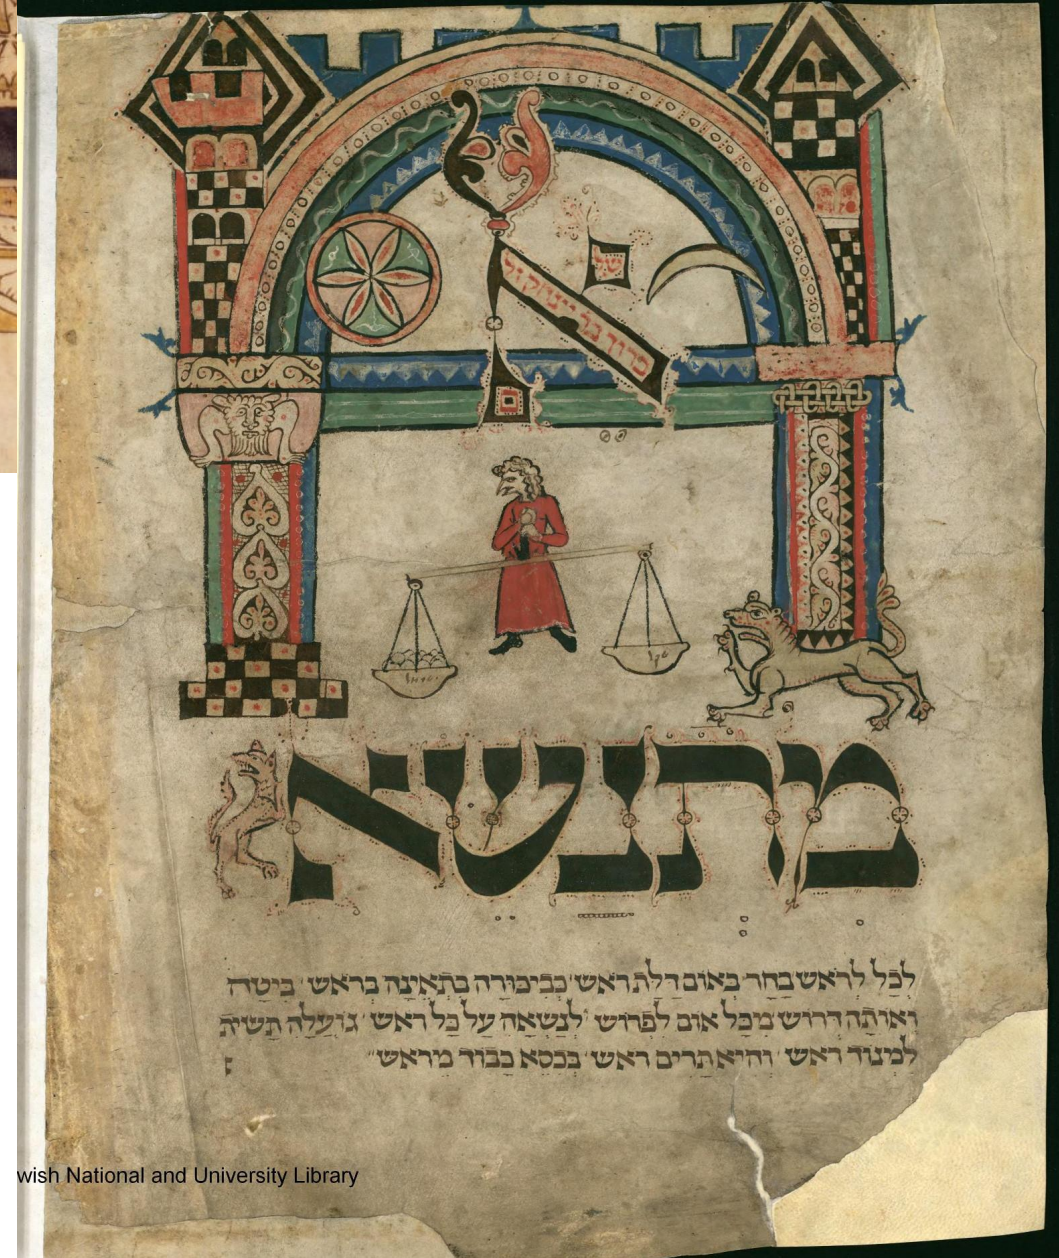 אל
ברוך בר
שקל
מתנשא
לכל לראש בחר באום דלת ראש כביכורה בתאינה בראש ביטה
ואותה דרוש מכל אום לפרוש לנשאה על כל ראש תשית
למנוד ראש והיא תרים ראש בכסא כבוד מראש
wish National and University Library